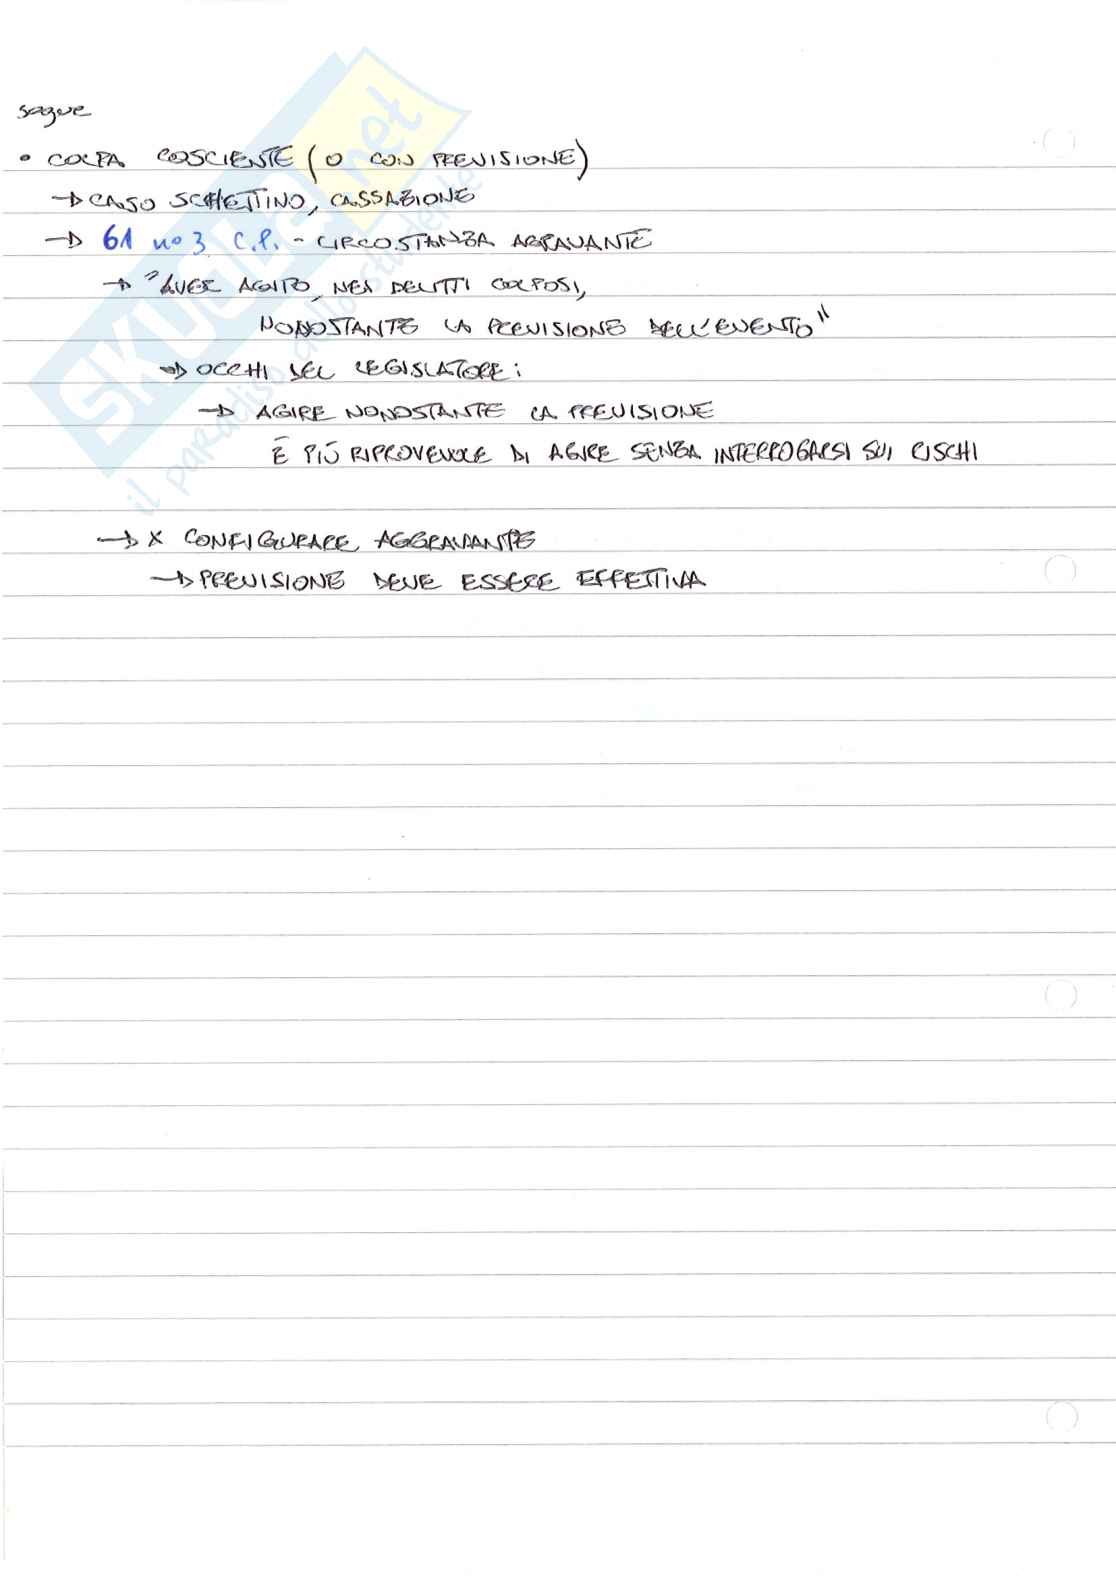 segue
• COLPA COSCIENTE (O CON PREVISIONE)
→ CASO SCHETTINO, CASSAZIONE
→ 61 no 3 C.P. - CIRCOSTANZA AGRAVANTE
→ "AVER AGITO, NEI DELITTI COLPOSI,
NONOSTANTE LA PREVISIONE DELL'EVENTO"
→ OCCHI DEL LEGISLATORE:
→ AGIRE NONOSTANTE LA PREVISIONE
È PIÙ RIPROVEVOLE DI AGIRE SENZA INTERROGARSI SUI RISCHI
→ X CONFIGURARE AGGRAVANTE
→ PREVISIONE DEVE ESSERE EFFETTIVA
SKUOLA.net
il paradiso dello studente